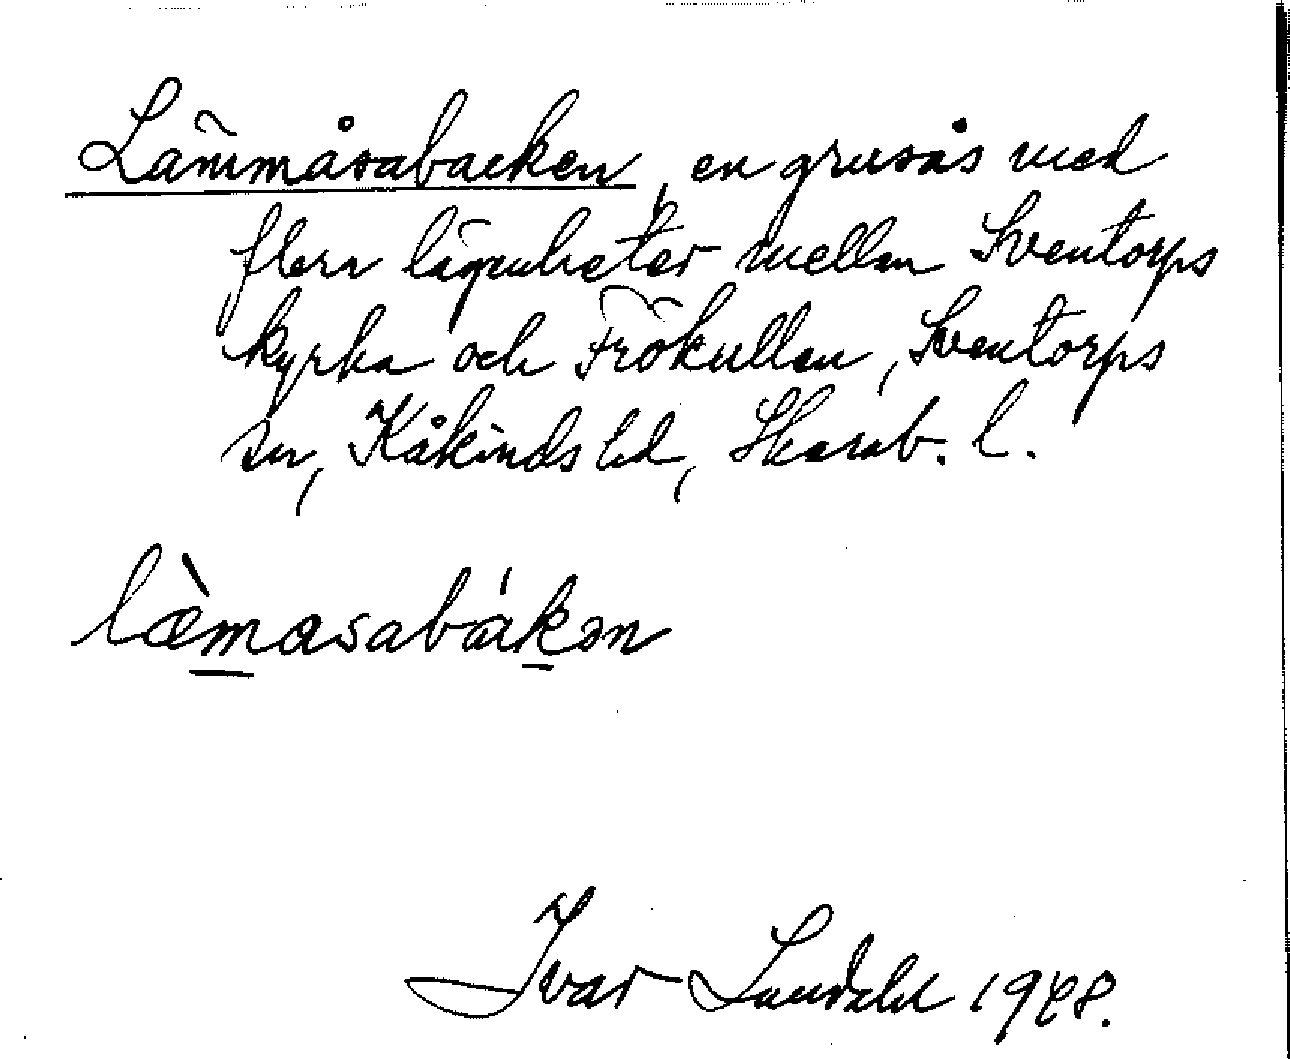 Lämmåsabacken, en grusås med
flera lägenheter mellan Sventorps
kyrka och Frökullen, Sventorps
sn, Kåkinds hd, Skarab. l.
læ̀masabákən
Ivar Lundahl 1948.